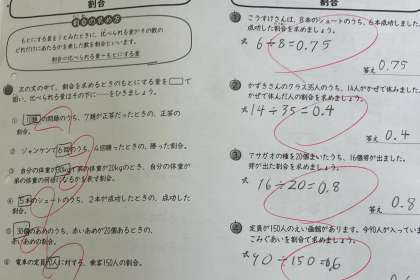 割合
割合の求め方
もとにする量を1とみたときに、比べられる量がその数の
どれだけにあたるかを表した数を割合といいます。
割合=比べられる量÷もとにする量
次の文の中で、割合を求めるときのもとにする量を□で
囲い、比べられる量はその下に——をひきましょう。
① 10題の問題のうち、7題が正答だったときの、正答の
割合。
② ジャンケンで6回のうち、4回勝ったときの、勝った割合。
③ 自分の体重が30kgで弟の体重が20kgのとき、自分の体重が
弟の体重の何倍になるかを表す割合。
④ 5本のシュートのうち、2本が成功したときの、成功した
割合。
⑤ 30個のあめのうち、赤いあめが20個あるときの、
赤いあめの割合。
⑥ 電車の定員90人に対する、乗客150人の割合。
割合
① こうすけさんは、8本のシュートのうち、6本成功しました。
成功した割合を求めましょう。
式 6÷8=0.75
答え 0.75
② かずきさんのクラス35人のうち、14人がかぜで休みました。
かぜで休んだ人の割合を求めましょう。
式 14÷35=0.4
答え 0.4
③ アサガオの種を20個まいたうち、16個芽が出ました。
芽が出た割合を求めましょう。
式 16÷20=0.8
答え 0.8
④ 定員が150人のえい画館があります。今90人が入ってい
こみぐあいを割合で求めましょう。
式 90÷150=0.6